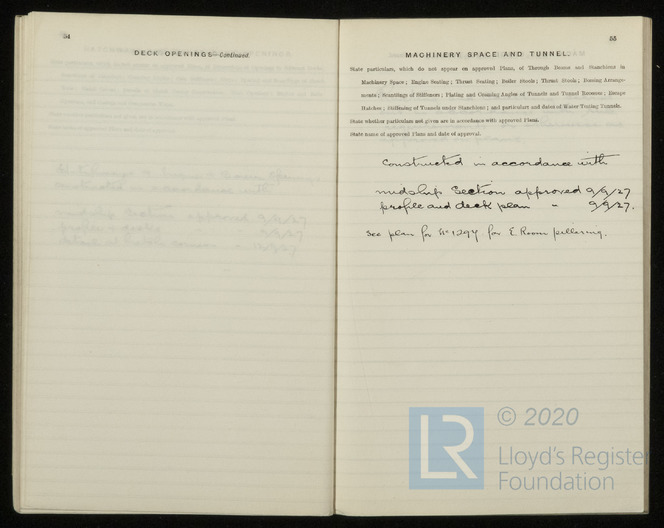 54
DECK OPENINGS—Continued.
55
MACHINERY SPACE AND TUNNEL.
State particulars, which do not appear on approved Plans, of Through Beams and Stanchions in
Machinery Space; Engine Seating; Thrust Seating; Boiler Stools; Thrust Stools; Bossing Arrange-
ments; Scantlings of Stiffeners; Plating and Crossing Angles of Tunnels and Tunnel Recesses; Escape
Hatches; Stiffening of Tunnels under Stanchions; and particulars and dates of Water Testing Tunnels.
State whether particulars not given are in accordance with approved Plans.
State name of approved Plans and date of approval.
Constructed in accordance with
midship Section approved 9/9/27
profile and deck plan " 9/9/27.
See plan for No 1294 for E. Room pillaring.
LR © 2020
Lloyd's Register
Foundation